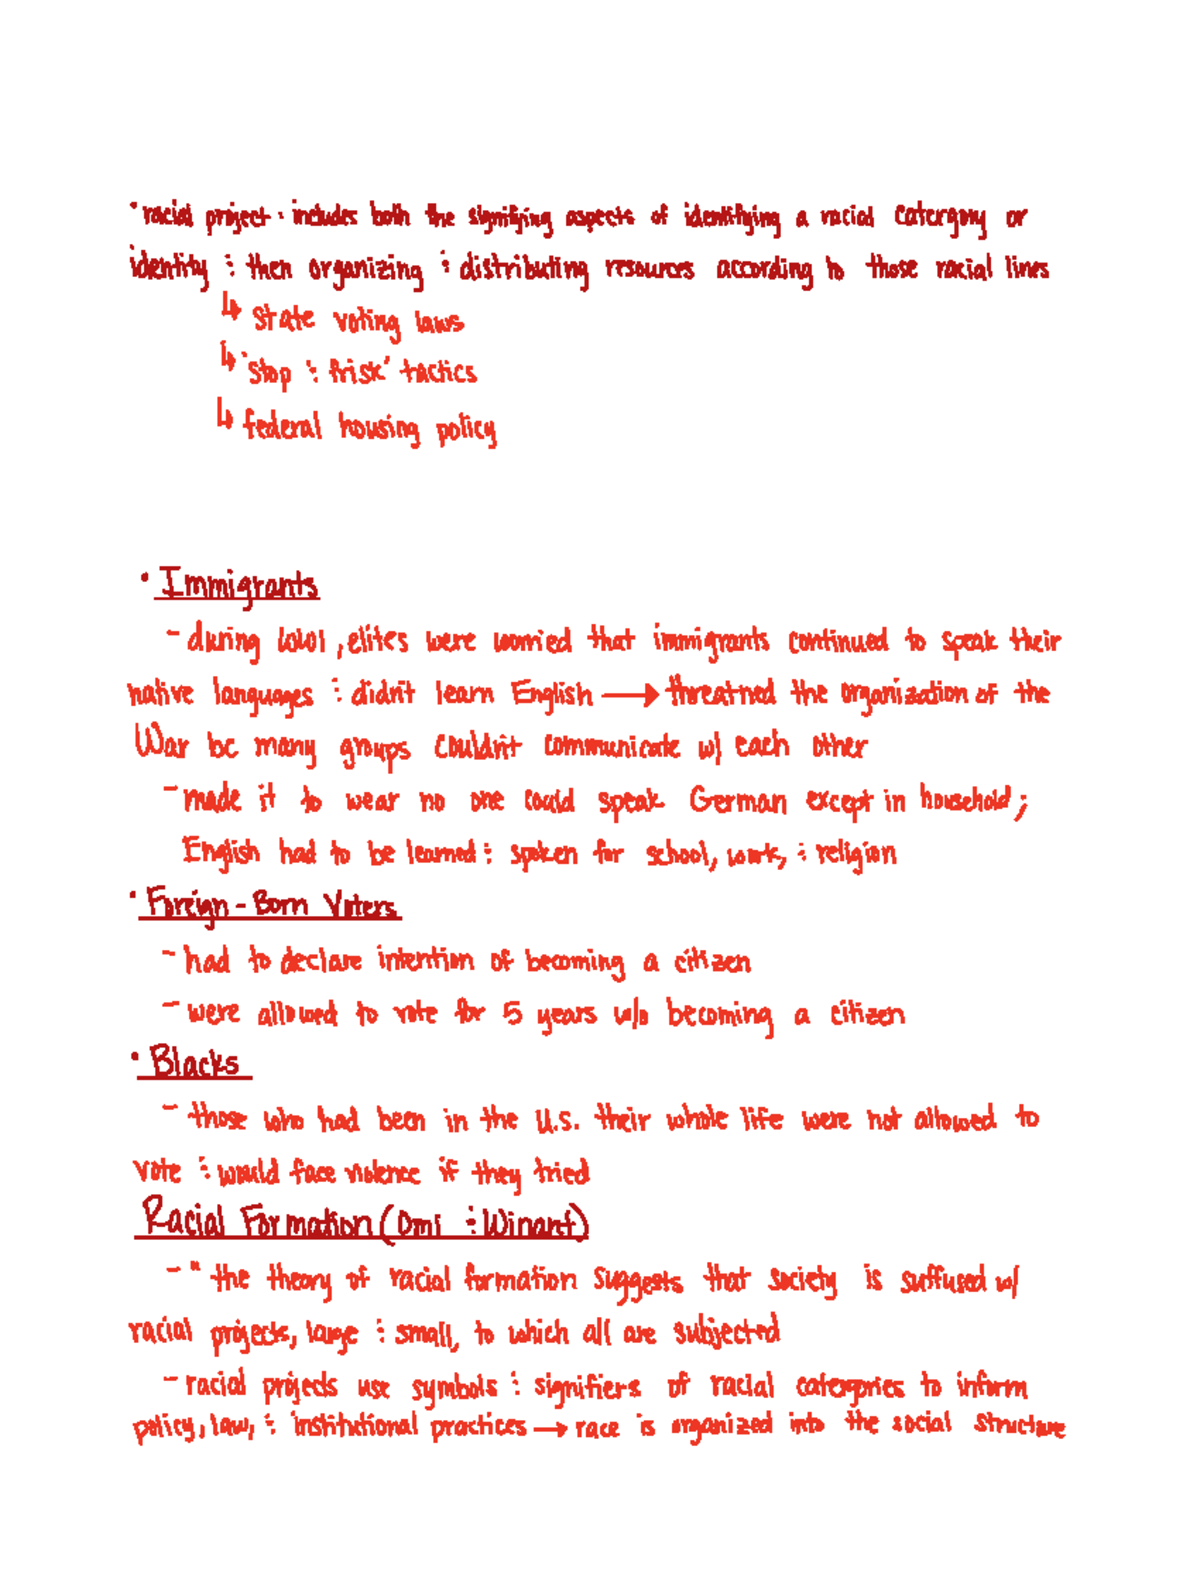 • racial project: includes both the signifying aspects of identifying a racial catergory or
identity & then organizing & distributing resources according to those racial lines
↳ state voting laws
↳ 'stop & frisk' tactics
↳ federal housing policy
• Immigrants
- during WW1, elites were worried that immigrants continued to speak their
native languages & didn't learn English → threatned the organization of the
War bc many groups couldn't communicate w/ each other
- made it to wear no one could speak German except in household;
English had to be learned & spoken for school, work, & religion
• Foreign-Born Voters
- had to declare intention of becoming a citizen
- were allowed to vote for 5 years w/o becoming a citizen
• Blacks
- those who had been in the U.S. their whole life were not allowed to
vote & would face violence if they tried
Racial Formation (Omi & Winant)
- " the theory of racial formation suggests that society is suffused w/
racial projects, large & small, to which all are subjected
- racial projects use symbols & signifiers of racial catergories to inform
policy, law, & institutional practices → race is organized into the social structure